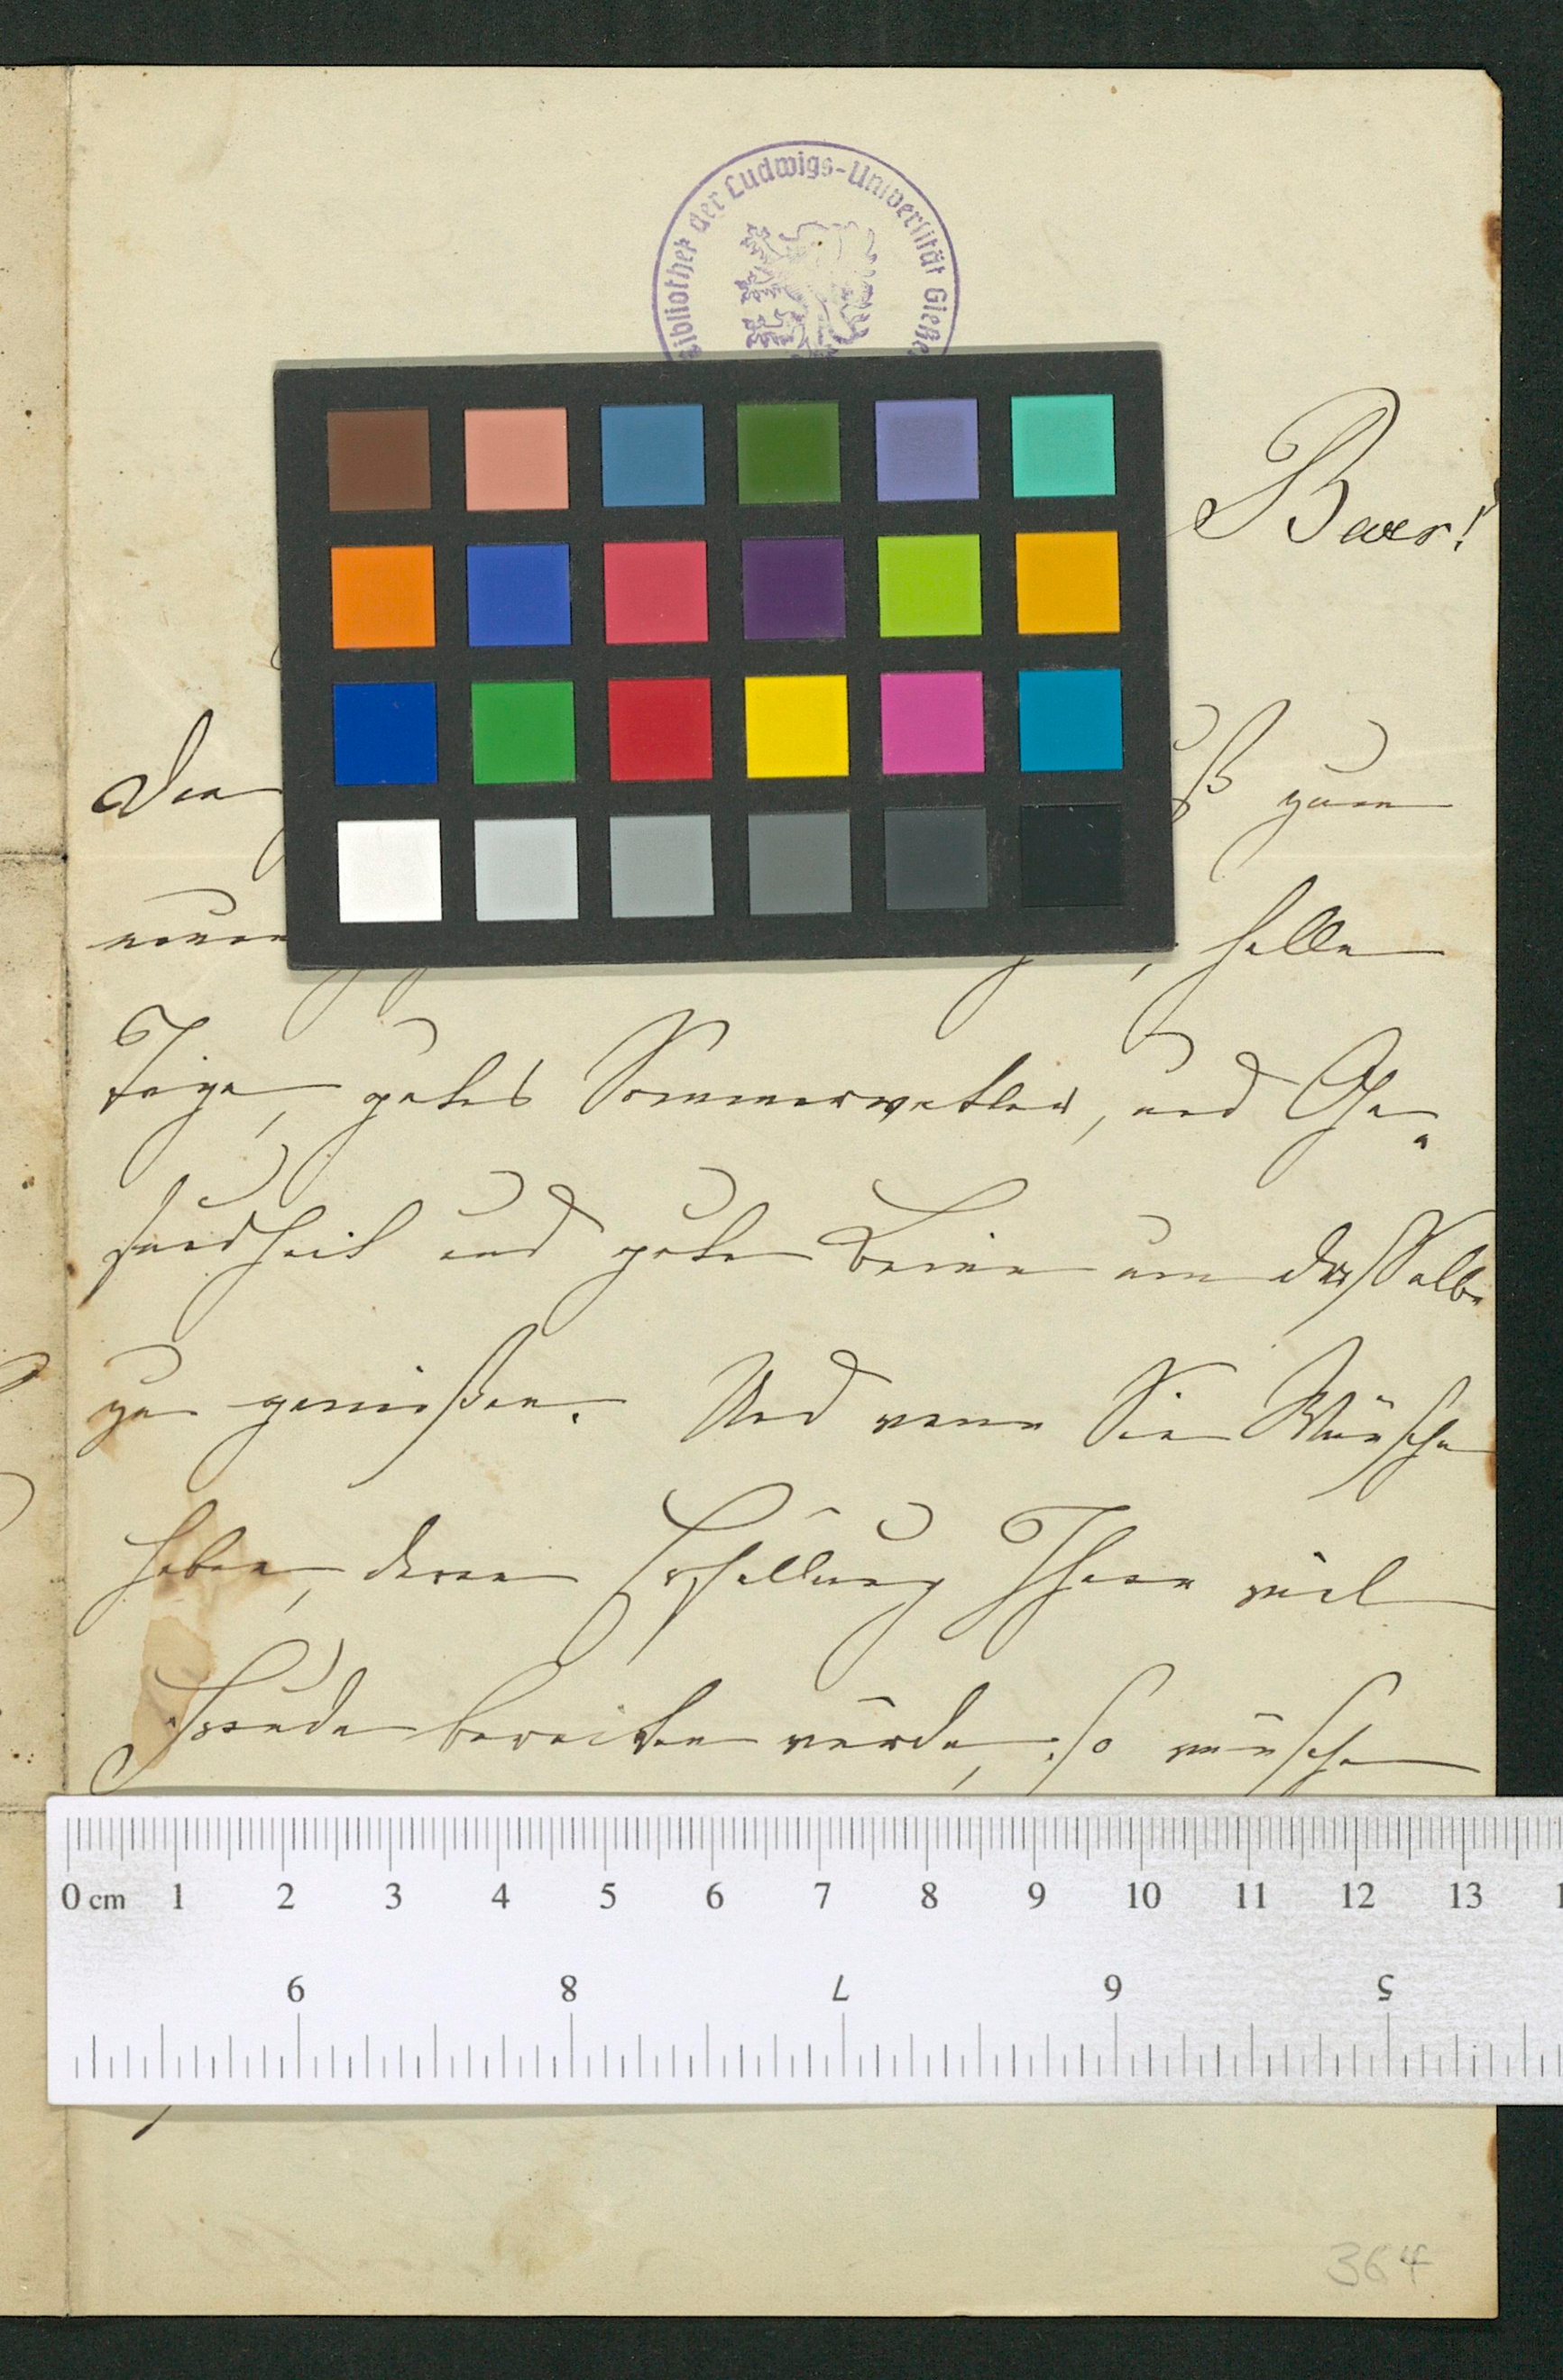 Bibliothek der Ludwigs-Universität Gieße
Baer!
zum
neuen helle
Tage, gutes Sommerwetter, und Ge-
sundheit und gute Beine um dasselbe
zu genießen. Und wenn Sie Wünsche
haben, deren Erfüllung Ihnen viel
Freude bereiten würde, so wünsche
0 cm 1 2 3 4 5 6 7 8 9 10 11 12 13 1
9 8 7 6 5
364